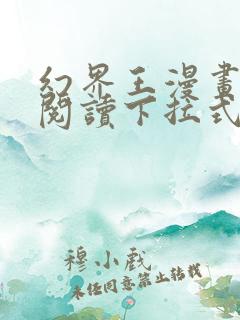 幻界王漫畫
閱讀下拉式
穆小戲
未經同意禁止轉載